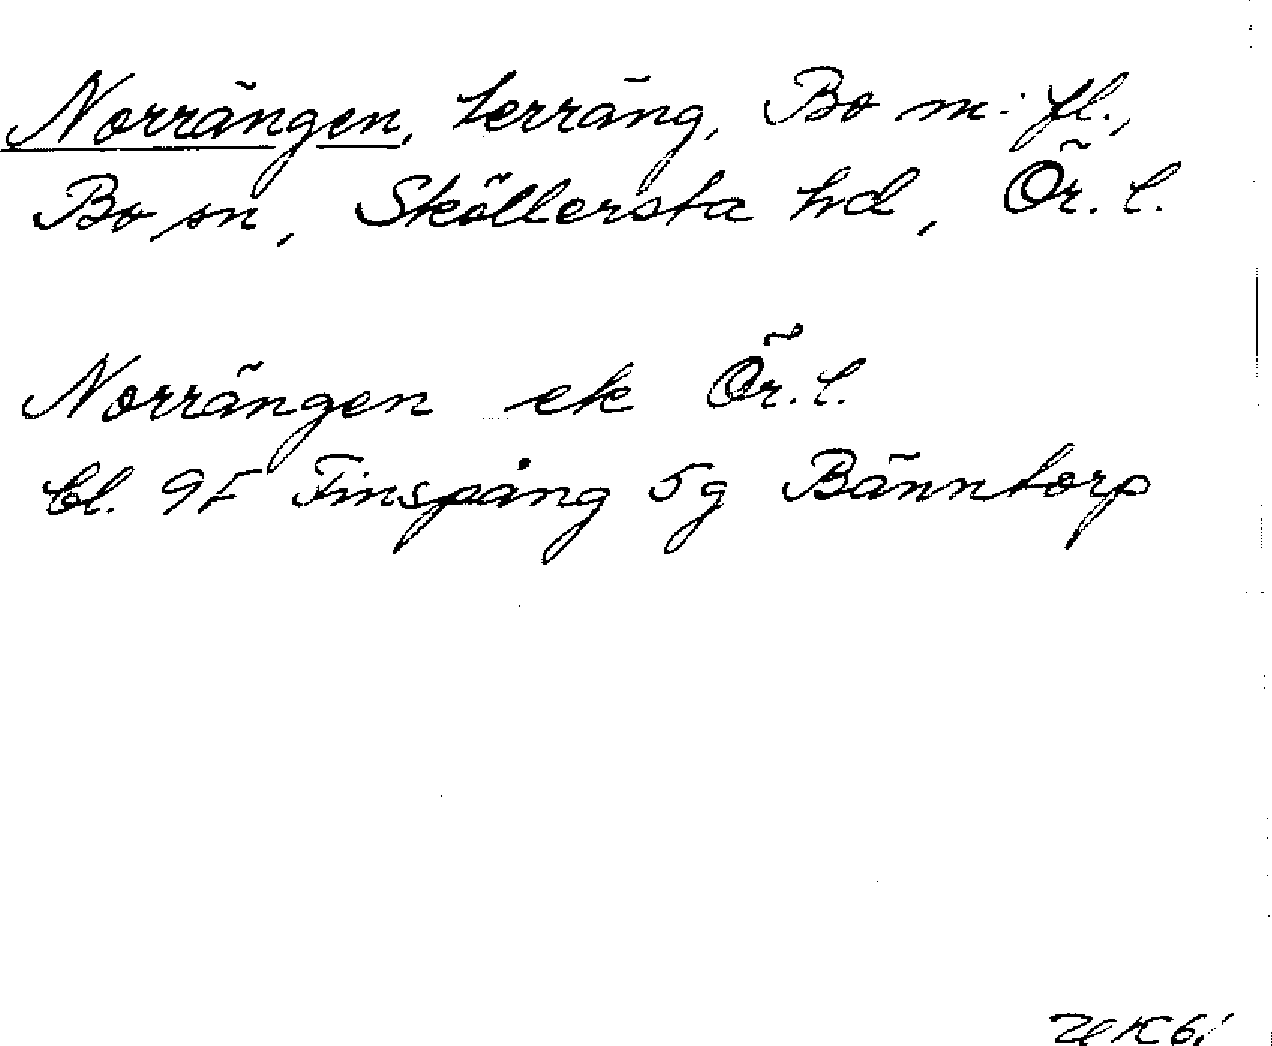 Norrängen, terräng, Bo m. fl.,
Bo sn, Sköllersta hd, Ör. l.
Norrängen ek Ör. l.
bl. 9F Finspång 5g Bänntorp